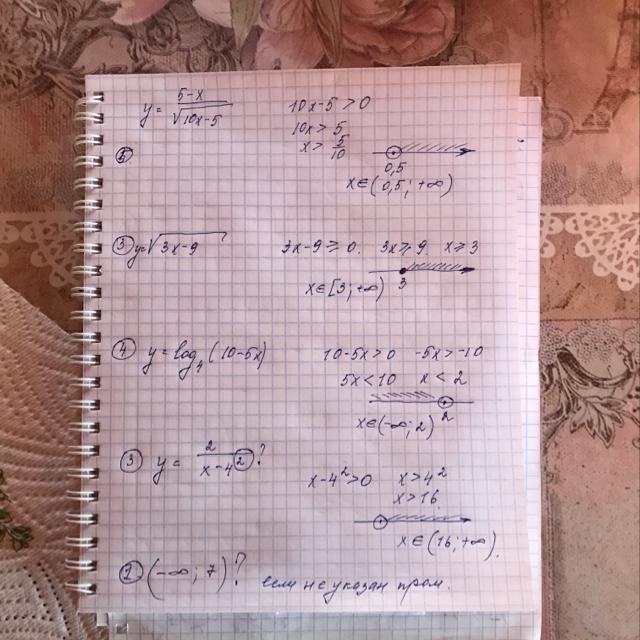 y = (5-x)/√(10x-5) 10x-5 > 0
10x > 5
x > 5/10
⑤
0,5
x∈(0,5; +∞)
③ y=√(3x-9) 3x-9 ≥ 0. 3x ≥ 9 x ≥ 3
x∈[3; +∞) 3
④ y = log₄(10-5x) 10-5x>0 -5x>-10
5x<10 x < 2
2
x∈(-∞; 2)
③ y = 2/(x-4②) ? x-4²>0 x>4²
x>16
x∈(16; +∞).
② (-∞; 7)? если не указан пром.